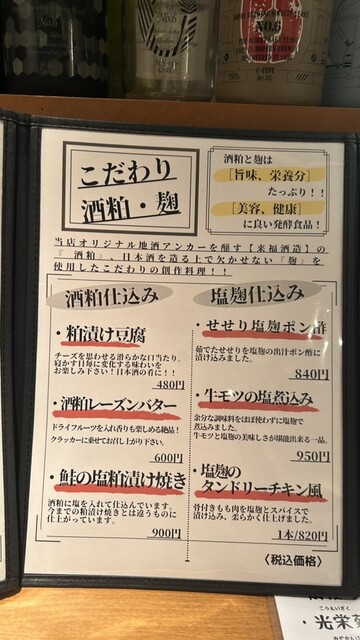 No.6
No.6
こだわり
酒粕・麹
酒粕と麹は
[旨味、栄養分]
たっぷり！！
[美容、健康]
に良い発酵食品！
当店オリジナル地酒アンカーを醸す【来福酒造】の
『酒粕』、日本酒を造る上で欠かせない『麹』を
使用したこだわりの創作料理！！
酒粕仕込み
・粕漬け豆腐
チーズを思わせる滑らかな口当たり。
寝かす日毎に変化する味わいを
お楽しみ下さい！日本酒の肴に！！
480円
・酒粕レーズンバター
ドライフルーツを入れ香りも楽しめる絶品！
クラッカーに乗せてお召し上がり下さい。
600円
・鮭の塩粕漬け焼き
酒粕に塩を入れて仕込んでいます。
今までの粕漬け焼きとは違うものに
仕上がっています。
900円
塩麹仕込み
・せせり塩麹ポン酢
茹でたせせりを塩麹の出汁ポン酢に
漬け込みました。
840円
・牛モツの塩煮込み
余分な調味料をほぼ使わずに塩麹で
煮込みました。
牛モツと塩麹の美味しさが堪能出来る一品。
950円
・塩麹の
タンドリーチキン風
骨付きもも肉を塩麹とスパイスで
漬け込み、柔らかく仕上げました。
1本/820円
〈税込価格〉
こうえいぎく
・光栄菊